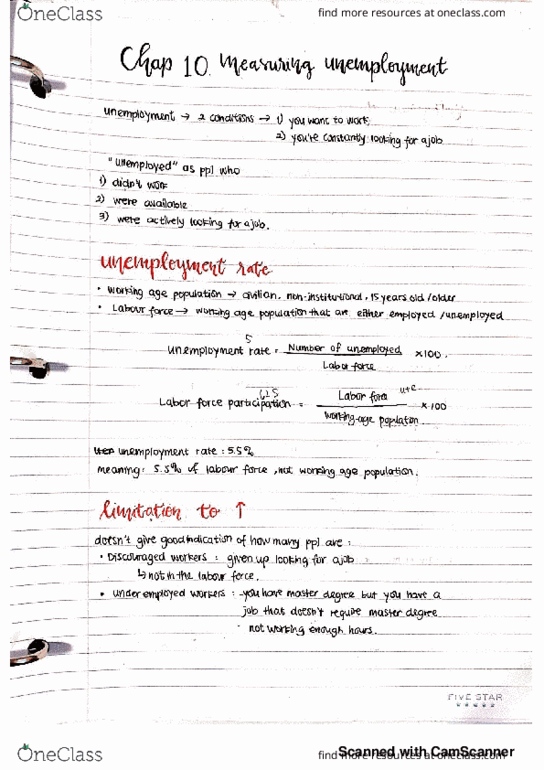 OneClass
find more resources at oneclass.com
Chap 10. Measuring unemployment
unemployment → 2 conditions → 1) you want to work
2) you're constantly looking for a job
"unemployed" as ppl who
1) didn't work
2) were available
3) were actively looking for a job.
unemployment rate
• Working age population → civilian, non-institutional, 15 years old / older
• Labour force → working age population that are either employed / unemployed
5
unemployment rate = Number of unemployed × 100.
Labor force
Labor force participation = Labor force × 100
working-age population
unemployment rate : 5.5%
meaning : 5.5% of labour force, not working age population.
limitation to ↑
doesn't give good indication of how many ppl are :
• Discouraged workers : given up looking for a job
↳ not in the labour force.
• under employed workers : - you have master degree but you have a
job that doesn't require master degree
• not working enough hours.
FIVE STAR
OneClass
find more resources at oneclass.com
Scanned with CamScanner